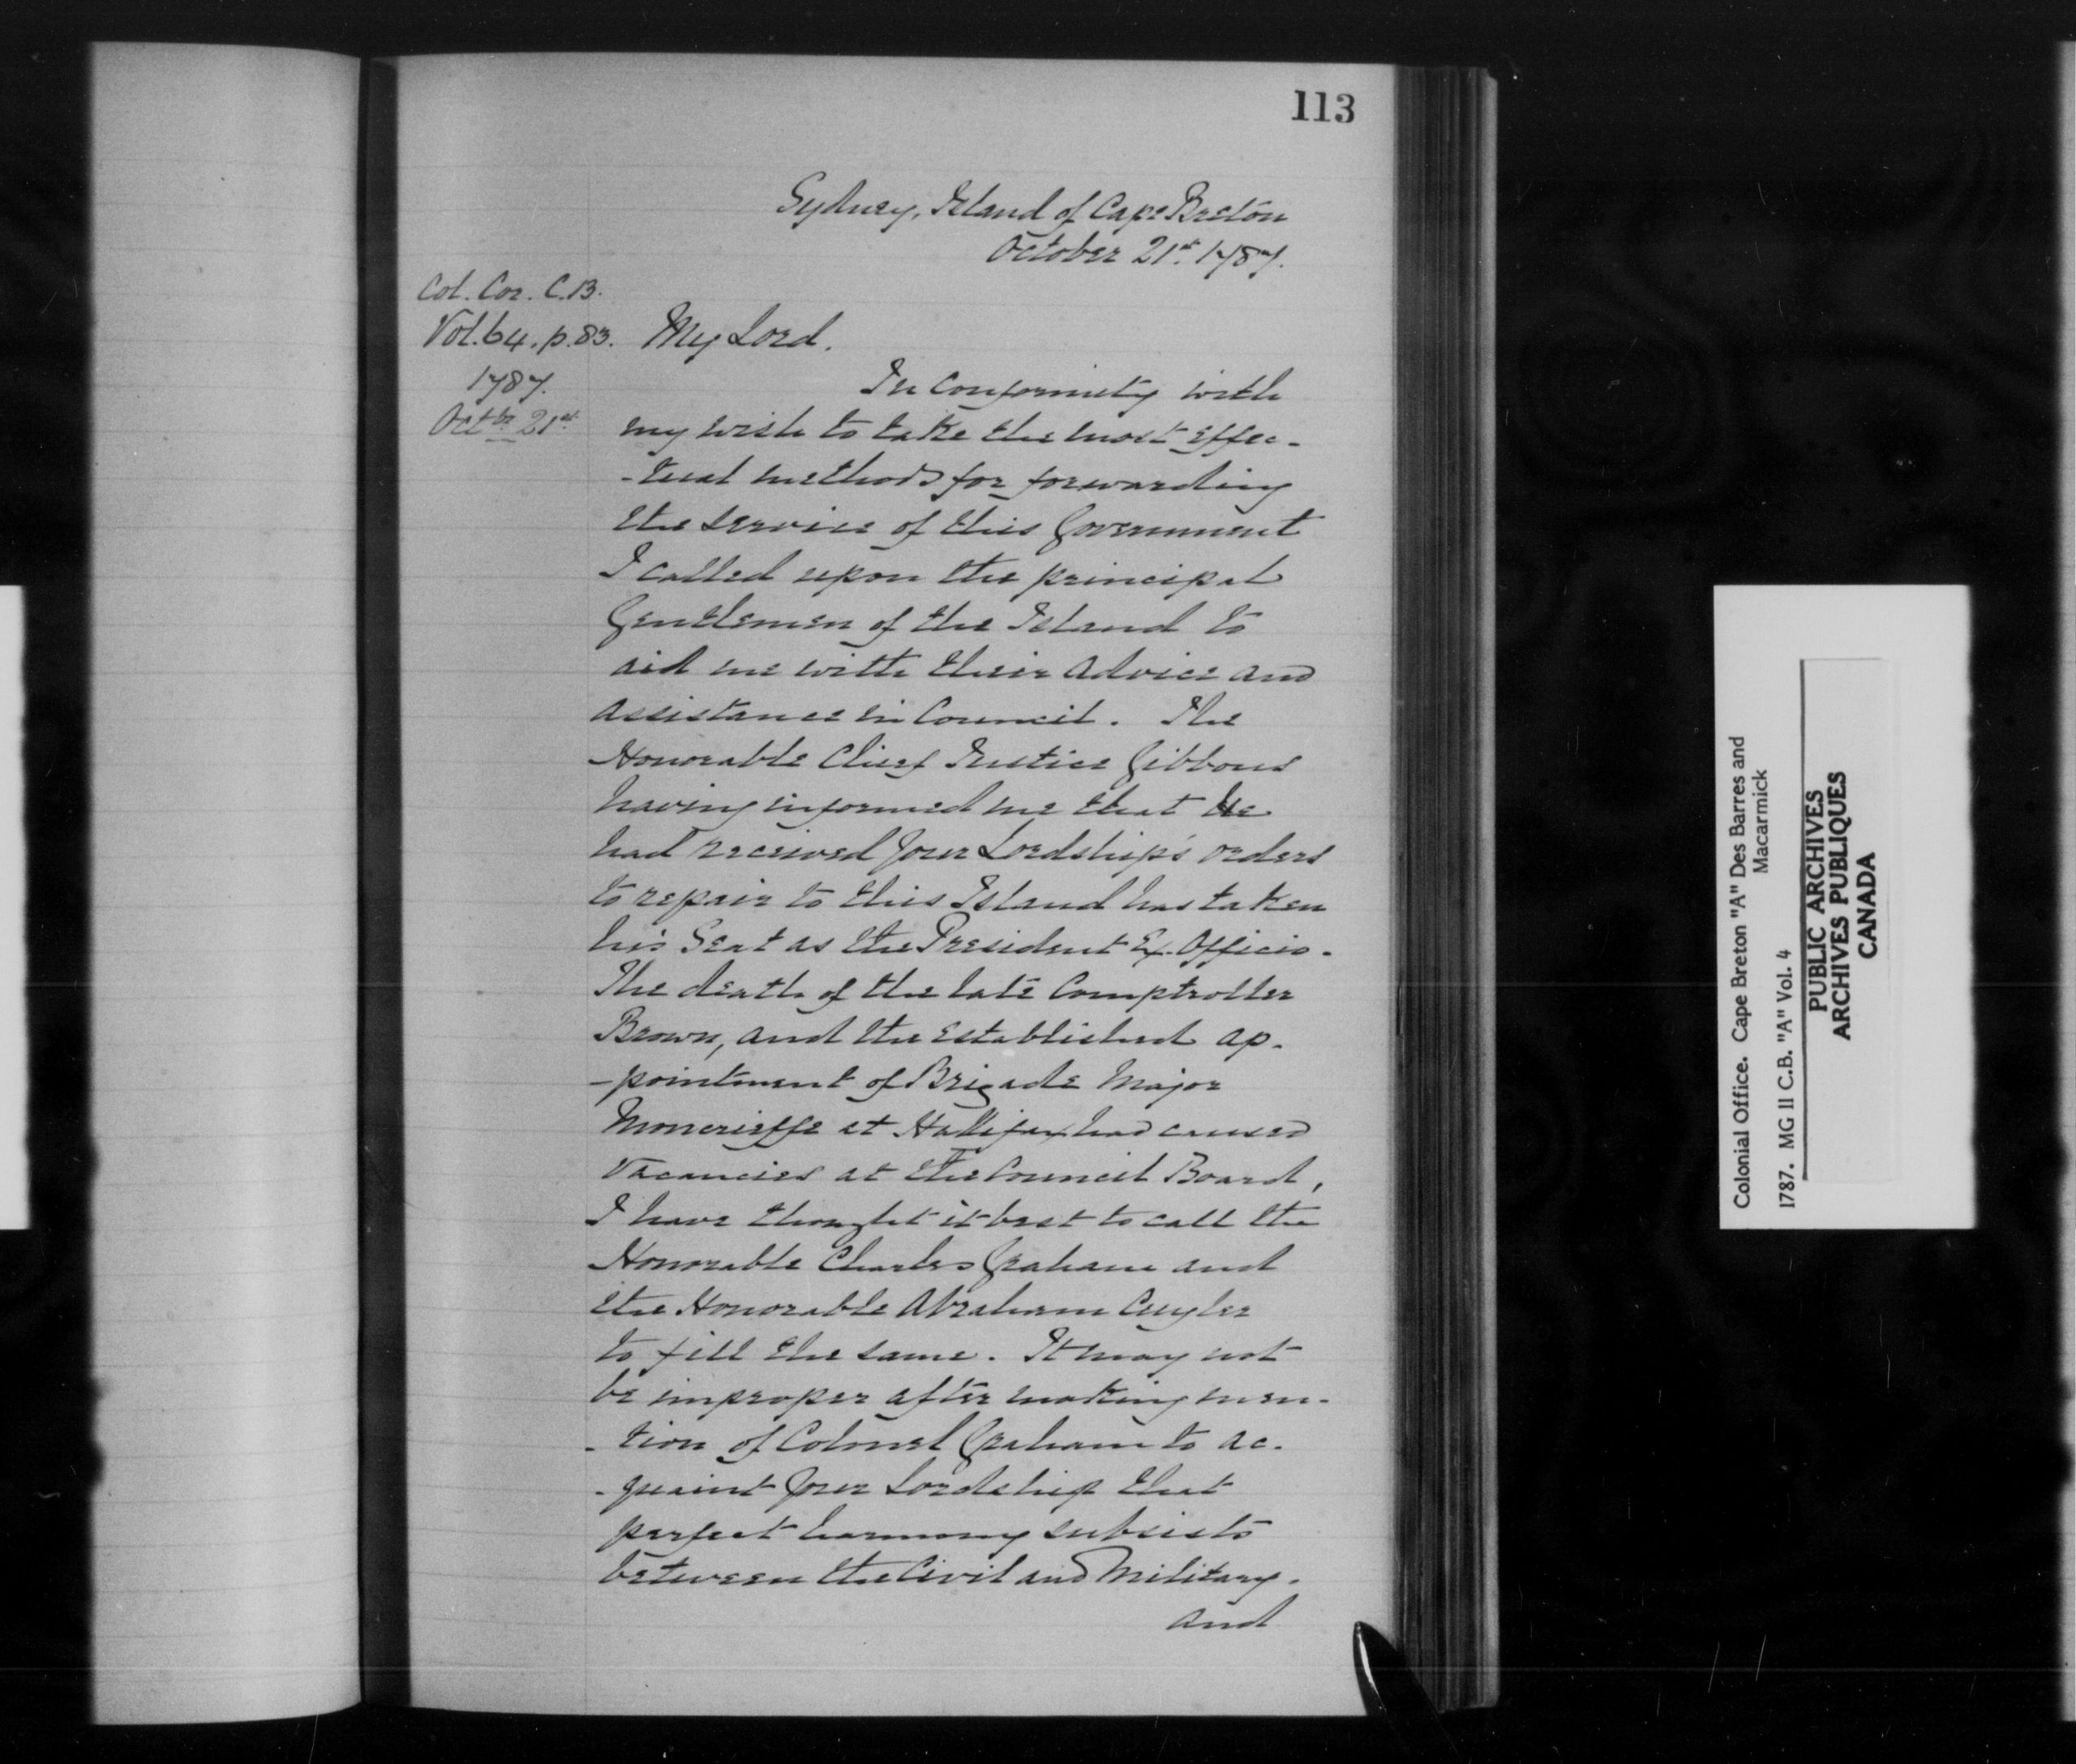 113
Sydney, Island of Cape Breton
October 21st 1787.
Col. Cor. C.B.
Vol. 64, p. 83.
1787.
Octbr 21st
My Lord.
In conformity with
my wish to take the most effec-
-tual methods for forwarding
the service of this Government
I called upon the principal
Gentlemen of the Island to
aid me with their advice and
assistance in Council. The
Honorable Chief Justice Gibbons
having informed me that He
had received your Lordship's orders
to repair to this Island has taken
his Seat as the President Ex. Officio.
The death of the late Comptroller
Brown, and the established ap-
-pointment of Brigade Major
Moncrieffe at Hallifax had caused
vacancies at the Council Board,
I have thought it best to call the
Honorable Charles Graham and
the Honorable Abraham Cuyler
to fill the same. It may not
be improper after making men-
-tion of Colonel Graham to ac-
-quaint your Lordship that
perfect harmony subsists
between the Civil and Military.
and
Colonial Office. Cape Breton "A" Des Barres and
Macarmick
1787. MG 11 C.B. "A" Vol. 4
PUBLIC ARCHIVES
ARCHIVES PUBLIQUES
CANADA